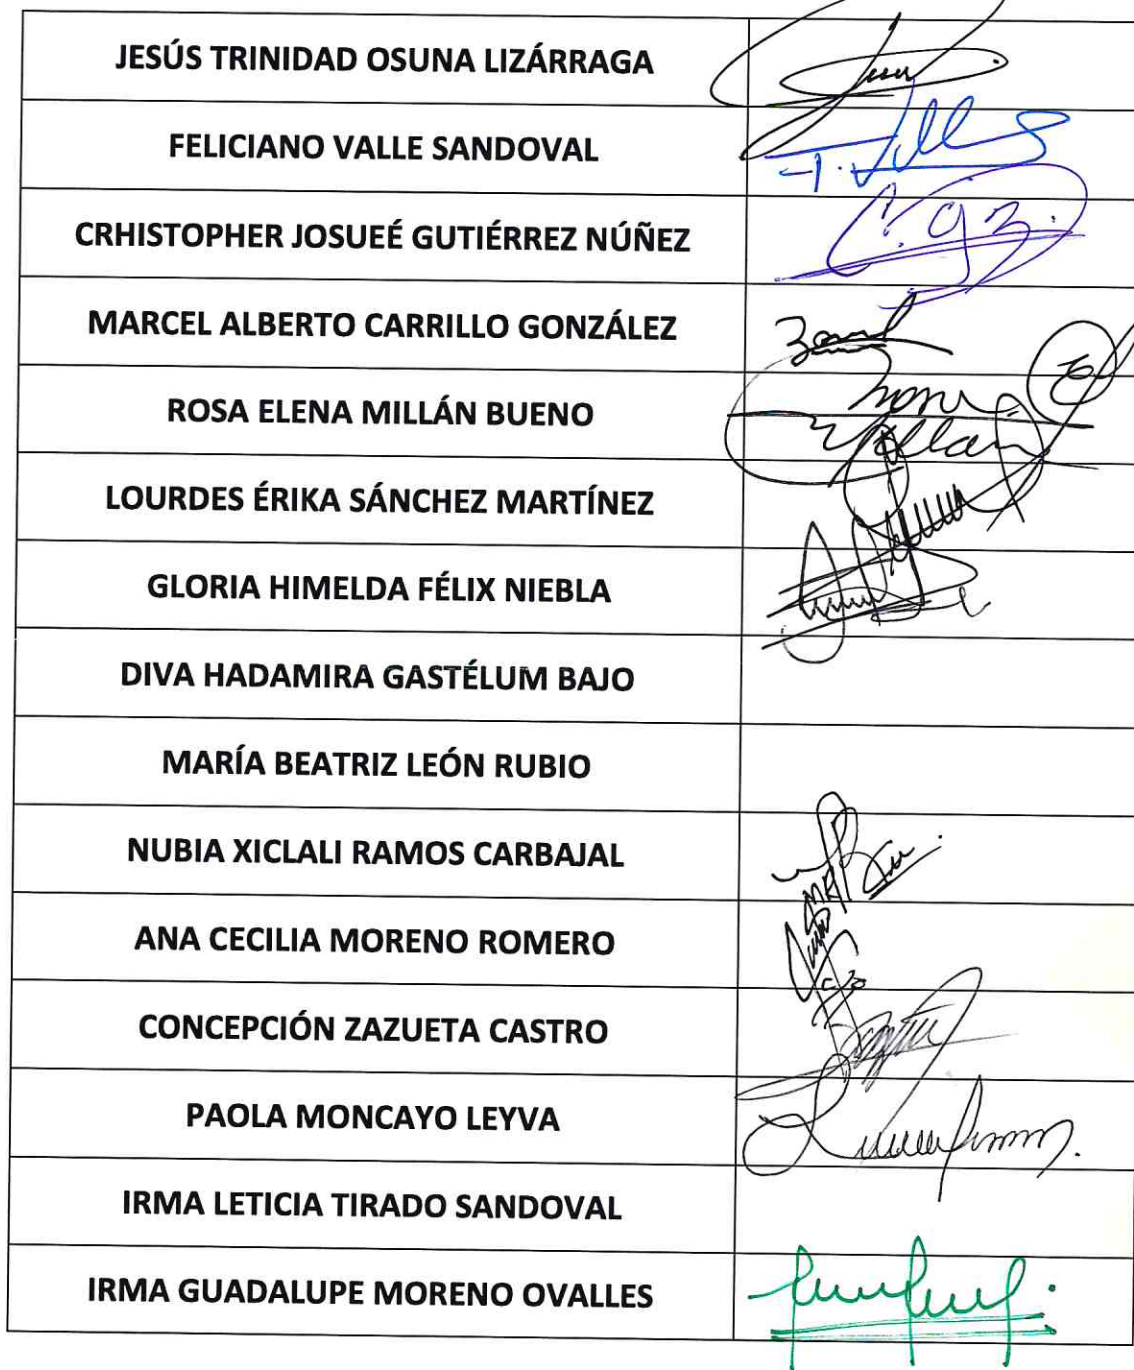 JESÚS TRINIDAD OSUNA LIZÁRRAGA
FELICIANO VALLE SANDOVAL
CRHISTOPHER JOSUEÉ GUTIÉRREZ NÚÑEZ
MARCEL ALBERTO CARRILLO GONZÁLEZ
ROSA ELENA MILLÁN BUENO
LOURDES ÉRIKA SÁNCHEZ MARTÍNEZ
GLORIA HIMELDA FÉLIX NIEBLA
DIVA HADAMIRA GASTÉLUM BAJO
MARÍA BEATRIZ LEÓN RUBIO
NUBIA XICLALI RAMOS CARBAJAL
ANA CECILIA MORENO ROMERO
CONCEPCIÓN ZAZUETA CASTRO
PAOLA MONCAYO LEYVA
IRMA LETICIA TIRADO SANDOVAL
IRMA GUADALUPE MORENO OVALLES